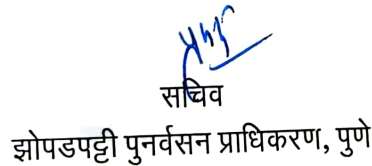 सचिव
झोपडपट्टी पुनर्वसन प्राधिकरण, पुणे